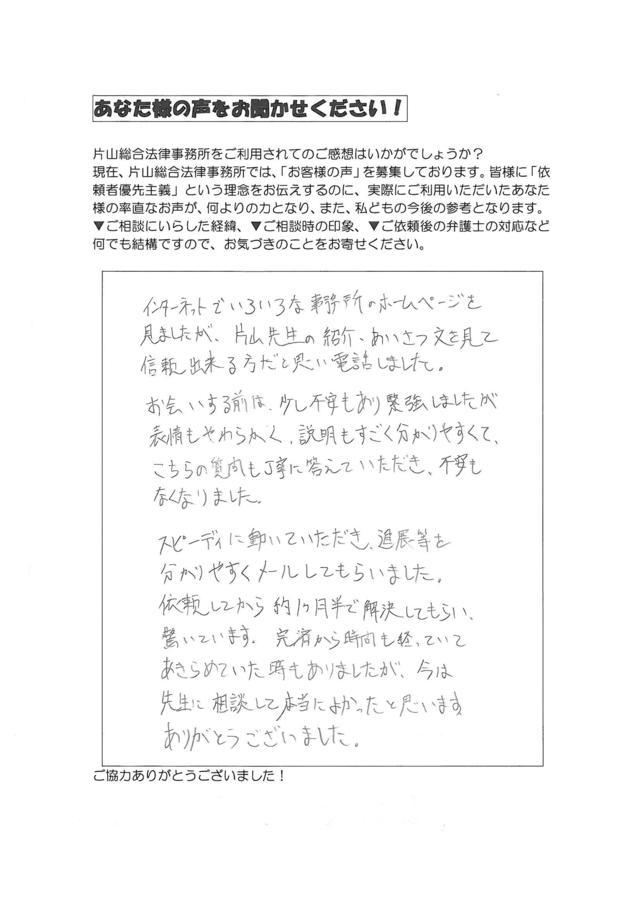 あなた様の声をお聞かせください！
片山総合法律事務所をご利用されてのご感想はいかがでしょうか？
現在、片山総合法律事務所では、「お客様の声」を募集しております。皆様に「依
頼者優先主義」という理念をお伝えするのに、実際にご利用いただいたあなた
様の率直なお声が、何よりの力となり、また、私どもの今後の参考となります。
▼ご相談にいらした経緯、▼ご相談時の印象、▼ご依頼後の弁護士の対応など
何でも結構ですので、お気づきのことをお寄せください。
インターネットでいろいろな事務所のホームページを
見ましたが、片山先生の紹介、あいさつ文を見て
信頼出来る方だと思い電話しました。
お会いする前は、少し不安もあり緊張しましたが
表情もやわらかく、説明もすごく分かりやすくて、
こちらの質問も丁寧に答えていただき、不安も
なくなりました。
スピーディに動いていただき、進展等を
分かりやすくメールしてもらいました。
依頼してから約1ヶ月半で解決してもらい、
驚いています。完済から時間も経っていて
あきらめていた時もありましたが、今は
先生に相談して本当によかったと思います
ありがとうございました。
ご協力ありがとうございました！